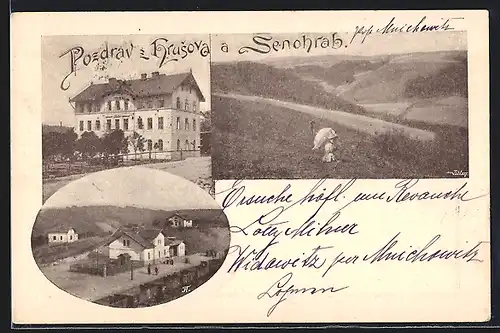 Pozdrav z Hrušova a Senohrab.
per Mnichowitz
Ersuche höfl. um Revanche
Loty Milner
Widowitz per Mnichowitz